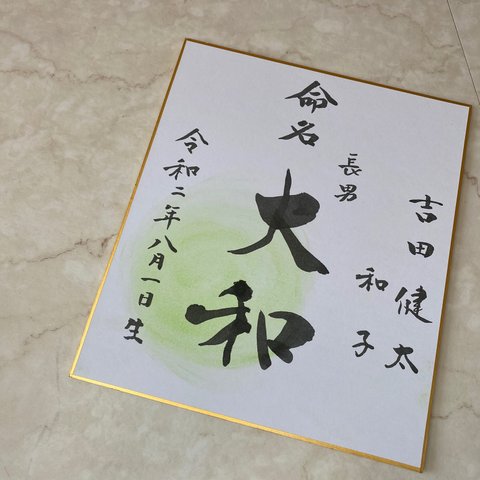 命名
吉田健太
和子
長男
大和
令和二年八月一日生